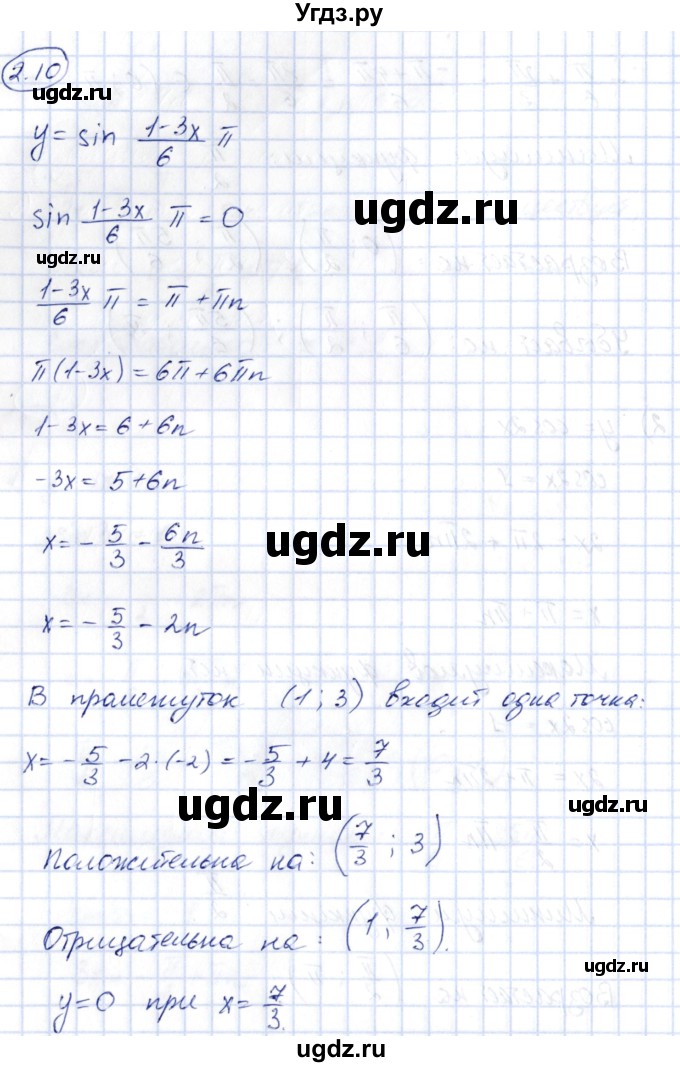 Угдз.ру
2.10
ugdz.ru
y = sin (1-3x)/6 π
sin (1-3x)/6 π = 0
ugdz.ru
ugdz.ru
(1-3x)/6 π = π + πn
π(1-3x) = 6π + 6πn
1-3x = 6 + 6n
-3x = 5+6n
x = - 5/3 - 6n/3
ugdz.ru
ugdz.ru
x = - 5/3 - 2n
В промежуток (1; 3) входит одна точка:
x = - 5/3 - 2·(-2) = - 5/3 + 4 = 7/3
ugdz.ru
ugdz.ru
Положительна на: (7/3 ; 3)
Отрицательна на: (1; 7/3).
ugdz.ru
y=0 при x= 7/3.
ugdz.ru